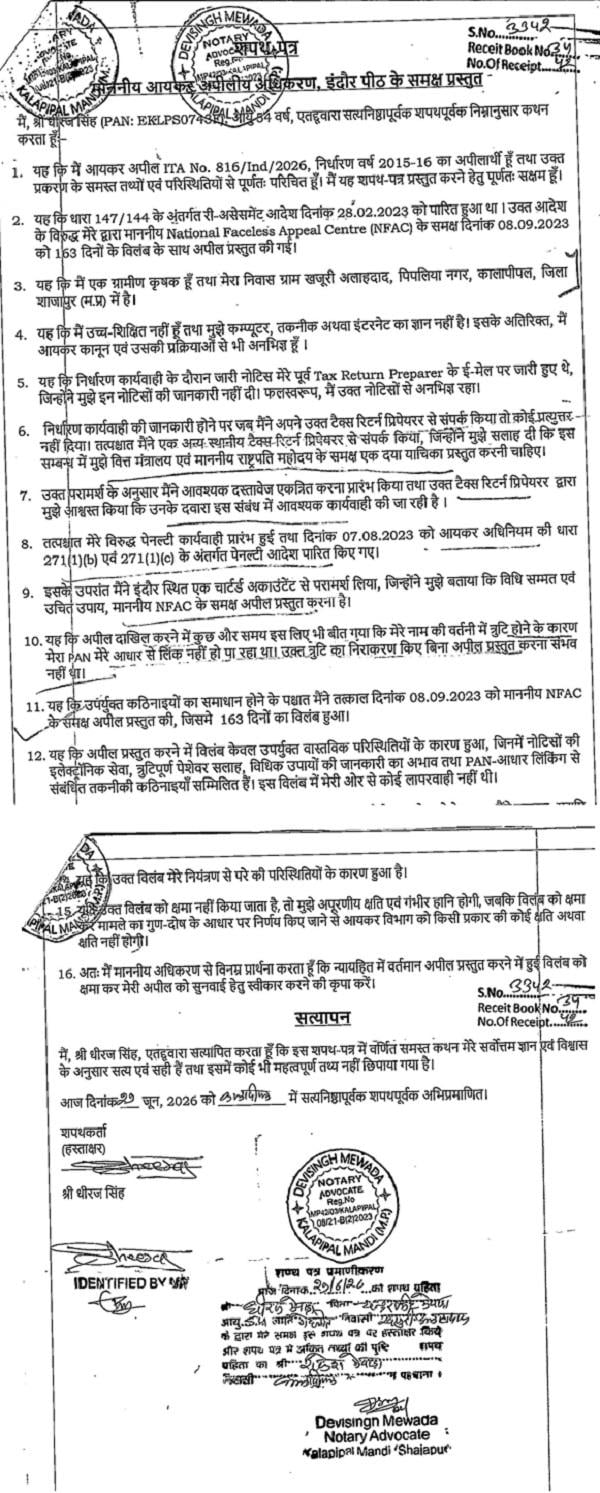 DEVISINGH MEWADA
NOTARY
ADVOCATE
Reg.No
KALAPIPAL MANDI
शपथ पत्र
S.No. 3342
Receit Book No. 34
No.Of Receipt. 42
माननीय आयकर अपीलीय अधिकरण, इंदौर पीठ के समक्ष प्रस्तुत
मैं, श्री धीरज सिंह (PAN: आयु 54 वर्ष, एतद्द्वारा सत्यनिष्ठापूर्वक शपथपूर्वक निम्नानुसार कथन
करता हूँ:-
1. यह कि मैं आयकर अपील ITA No. 816/Ind/2026, निर्धारण वर्ष 2015-16 का अपीलार्थी हूँ तथा उक्त
प्रकरण के समस्त तथ्यों एवं परिस्थितियों से पूर्णतः परिचित हूँ। मैं यह शपथ-पत्र प्रस्तुत करने हेतु पूर्णतः सक्षम हूँ।
2. यह कि धारा 147/144 के अंतर्गत री-असेसमेंट आदेश दिनांक 28.02.2023 को पारित हुआ था। उक्त आदेश
के विरुद्ध मेरे द्वारा माननीय National Faceless Appeal Centre (NFAC) के समक्ष दिनांक 08.09.2023
को 163 दिनों के विलंब के साथ अपील प्रस्तुत की गई।
3. यह कि मैं एक ग्रामीण कृषक हूँ तथा मेरा निवास ग्राम खजूरी अलाहदाद, पिपलिया नगर, कालापीपल, जिला
शाजापुर (म.प्र) में है।
4. यह कि मैं उच्च-शिक्षित नहीं हूँ तथा मुझे कम्प्यूटर, तकनीक अथवा इंटरनेट का ज्ञान नहीं है। इसके अतिरिक्त, मैं
आयकर कानून एवं उसकी प्रक्रियाओं से भी अनभिज्ञ हूँ ।
5. यह कि निर्धारण कार्यवाही के दौरान जारी नोटिस मेरे पूर्व Tax Return Preparer के ई-मेल पर जारी हुए थे,
जिन्होंने मुझे इन नोटिसों की जानकारी नहीं दी। फलस्वरूप, मैं उक्त नोटिसों से अनभिज्ञ रहा।
6. निर्धारण कार्यवाही की जानकारी होने पर जब मैंने अपने उक्त टैक्स रिटर्न प्रिपेयरर से संपर्क किया तो कोई प्रत्युत्तर
नहीं दिया। तत्पश्चात मैंने एक अन्य स्थानीय टैक्स रिटर्न प्रिपेयरर से संपर्क किया, जिन्होंने मुझे सलाह दी कि इस
सम्बन्ध में मुझे वित्त मंत्रालय एवं माननीय राष्ट्रपति महोदय के समक्ष एक दया याचिका प्रस्तुत करनी चाहिए।
7. उक्त परामर्श के अनुसार मैंने आवश्यक दस्तावेज एकत्रित करना प्रारंभ किया तथा उक्त टैक्स रिटर्न प्रिपेयरर द्वारा
मुझे आश्वस्त किया कि उनके दवारा इस संबंध में आवश्यक कार्यवाही की जा रही है ।
8. तत्पश्चात मेरे विरुद्ध पेनल्टी कार्यवाही प्रारंभ हुई तथा दिनांक 07.08.2023 को आयकर अधिनियम की धारा
271(1)(b) एवं 271(1)(c) के अंतर्गत पेनल्टी आदेश पारित किए गए।
9. इसके उपरांत मैंने इंदौर स्थित एक चार्टर्ड अकाउंटेंट से परामर्श लिया, जिन्होंने मुझे बताया कि विधि सम्मत एवं
उचित उपाय, माननीय NFAC के समक्ष अपील प्रस्तुत करना है।
10. यह कि अपील दाखिल करने में कुछ और समय इस लिए भी बीत गया कि मेरे नाम की वर्तनी में त्रुटि होने के कारण
मेरा PAN मेरे आधार से लिंक नहीं हो पा रहा था। उक्त त्रुटि का निराकरण किए बिना अपील प्रस्तुत करना संभव
नहीं था।
11. यह कि उपर्युक्त कठिनाइयों का समाधान होने के पश्चात मैंने तत्काल दिनांक 08.09.2023 को माननीय NFAC
के समक्ष अपील प्रस्तुत की, जिसमे 163 दिनों का विलंब हुआ।
12. यह कि अपील प्रस्तुत करने में विलंब केवल उपर्युक्त वास्तविक परिस्थितियों के कारण हुआ, जिनमें नोटिसों की
इलेक्ट्रॉनिक सेवा, त्रुटिपूर्ण पेशेवर सलाह, विधिक उपायों की जानकारी का अभाव तथा PAN-आधार लिंकिंग से
संबंधित तकनीकी कठिनाइयाँ सम्मिलित हैं। इस विलंब में मेरी ओर से कोई लापरवाही नहीं थी।
यह कि उक्त विलंब मेरे नियंत्रण से परे की परिस्थितियों के कारण हुआ है।
15. यदि उक्त विलंब को क्षमा नहीं किया जाता है, तो मुझे अपूरणीय क्षति एवं गंभीर हानि होगी, जबकि विलंब को क्षमा
कर मामले का गुण-दोष के आधार पर निर्णय किए जाने से आयकर विभाग को किसी प्रकार की कोई क्षति अथवा
क्षति नहीं होगी।
16. अतः मैं माननीय अधिकरण से विनम्र प्रार्थना करता हूँ कि न्यायहित में वर्तमान अपील प्रस्तुत करने में हुई विलंब को
क्षमा कर मेरी अपील को सुनवाई हेतु स्वीकार करने की कृपा करें।
S.No. 3342
Receit Book No. 34
No.Of Receipt. 42
सत्यापन
मैं, श्री धीरज सिंह, एतद्द्वारा सत्यापित करता हूँ कि इस शपथ-पत्र में वर्णित समस्त कथन मेरे सर्वोत्तम ज्ञान एवं विश्वास
के अनुसार सत्य एवं सही हैं तथा इसमें कोई भी महत्वपूर्ण तथ्य नहीं छिपाया गया है।
आज दिनांक 29 जून, 2026 को में सत्यनिष्ठापूर्वक शपथपूर्वक अभिप्रमाणित।
शपथकर्ता
(हस्ताक्षर)
श्री धीरज सिंह
IDENTIFIED BY
DEVISINGH MEWADA
NOTARY
ADVOCATE
Reg.No
MP42/03/KALAPIPAL
08/21-B(2)2023
KALAPIPAL MANDI (M.P.)
शपथ पत्र प्रमाणीकरण
आज दिनांक 29/6/26 को शपथ गृहिता
श्री धीरज सिंह पिता
आयु 54 जाति निवासी
के द्वारा मेरे समक्ष इस शपथ पत्र पर हस्ताक्षर किये
और शपथ पत्र में अंकित तथ्यों की पुष्टि शपथ
गृहिता का श्री
निवासी ने पहचाना।
Devisingn Mewada
Notary Advocate
Kalapipal Mandi Shajapur